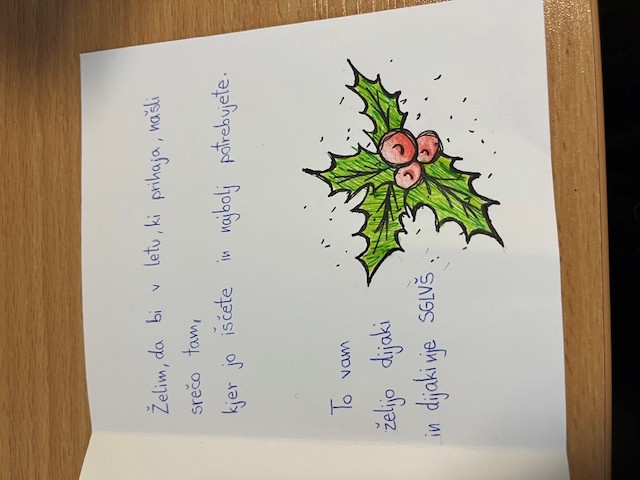 Želim, da bi v letu, ki prihaja, našli
srečo tam,
kjer jo iščete in najbolj potrebujete.
To vam
želijo dijaki
in dijakinje SGLVŠ